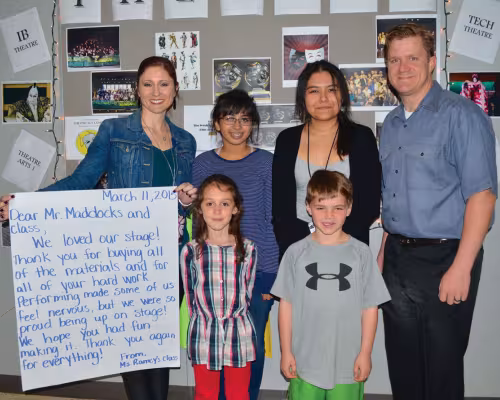 IB
THEATRE
TECH
THEATRE
THEATRE
ARTS 1
March 11, 2015
Dear Mr. Maddocks and
class,
We loved our stage!
Thank you for buying all
of the materials and for
all of your hard work.
Performing made some of us
feel nervous, but we were so
proud being up on stage!
We hope you had fun
making it. Thank you again
for everything!
From,
Ms. Ramey's class